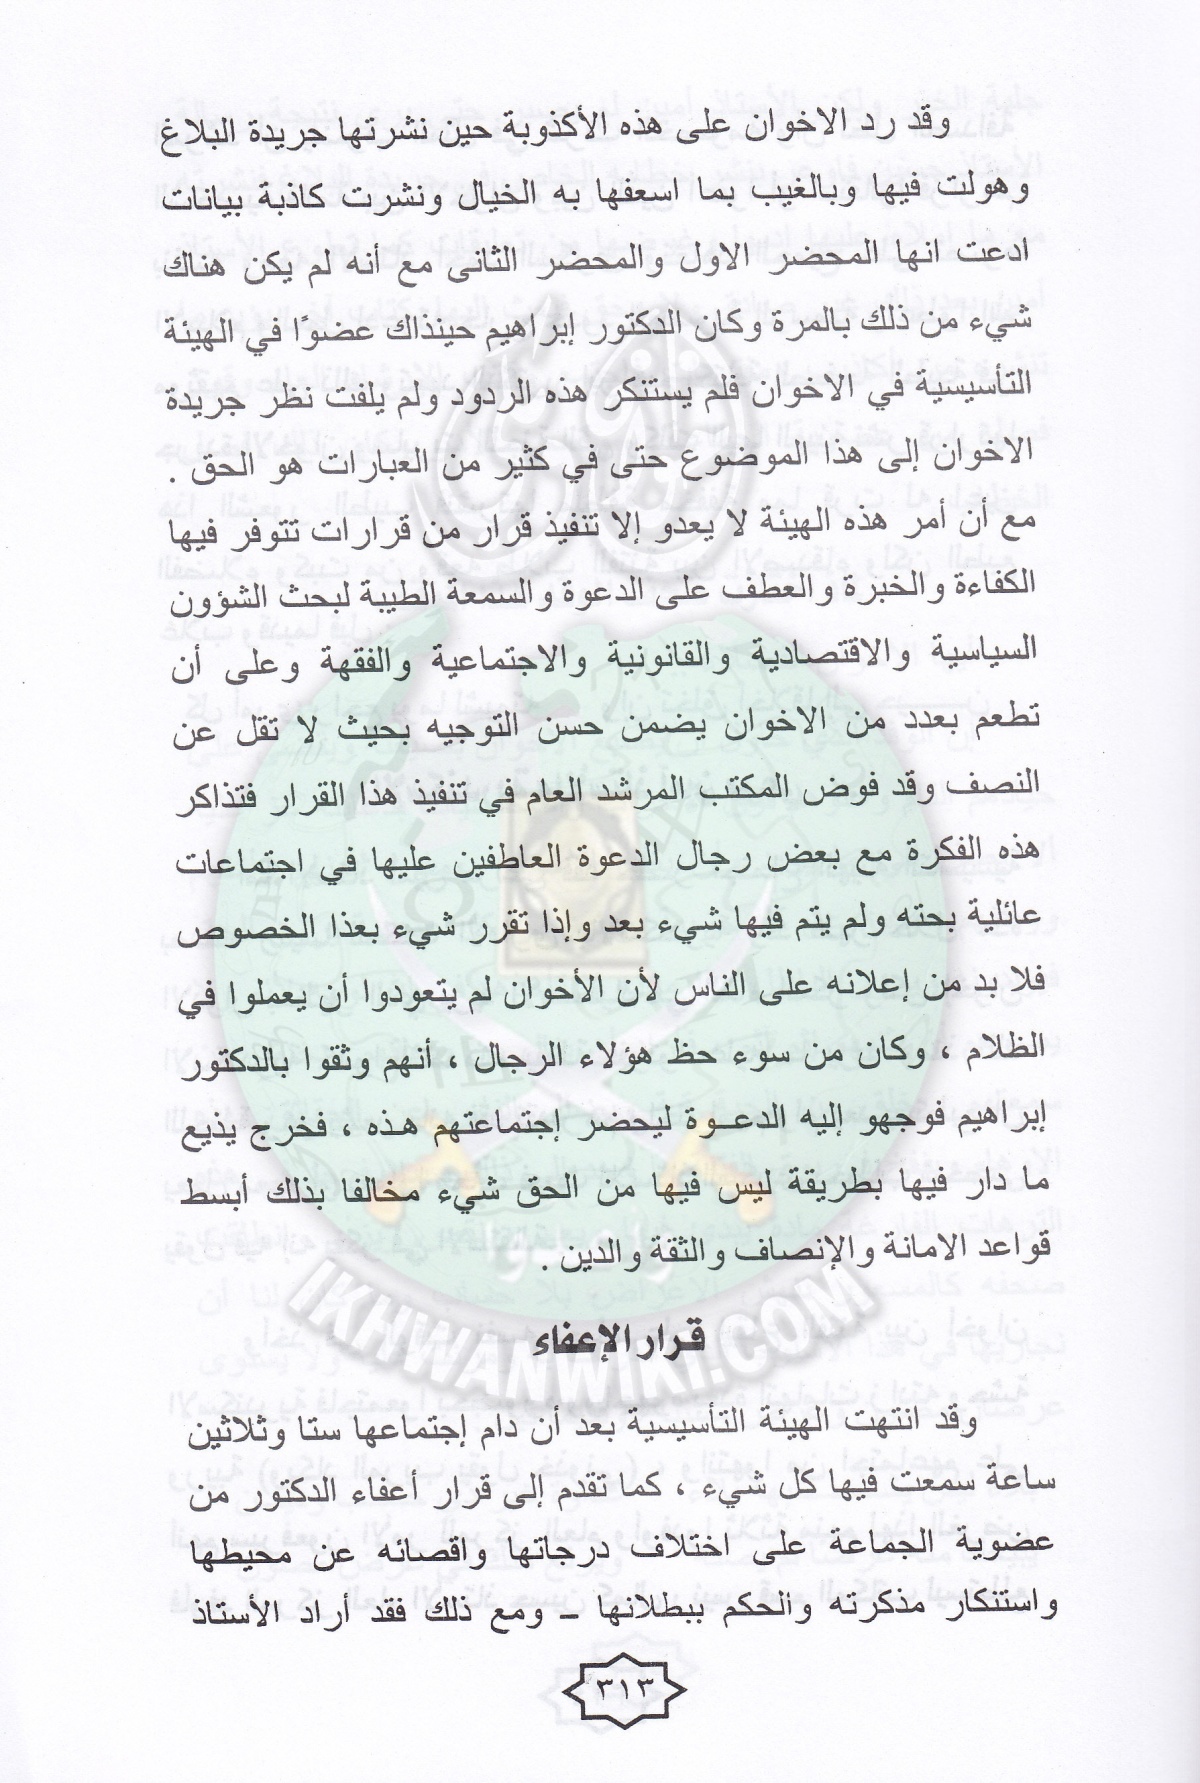 وقد رد الاخوان على هذه الأكذوبة حين نشرتها جريدة البلاغ
وهولت فيها وبالغيب بما اسعفها به الخيال ونشرت كاذبة بيانات
ادعت انها المحضر الاول والمحضر الثانى مع أنه لم يكن هناك
شيء من ذلك بالمرة وكان الدكتور إبراهيم حينذاك عضوًا في الهيئة
التأسيسية في الاخوان فلم يستنكر هذه الردود ولم يلفت نظر جريدة
الاخوان إلى هذا الموضوع حتى في كثير من العبارات هو الحق .
مع أن أمر هذه الهيئة لا يعدو إلا تنفيذ قرار من قرارات تتوفر فيها
الكفاءة والخبرة والعطف على الدعوة والسمعة الطيبة لبحث الشؤون
السياسية والاقتصادية والقانونية والاجتماعية والفقهة وعلى أن
تطعم بعدد من الاخوان يضمن حسن التوجيه بحيث لا تقل عن
النصف وقد فوض المكتب المرشد العام في تنفيذ هذا القرار فتذاكر
هذه الفكرة مع بعض رجال الدعوة العاطفين عليها في اجتماعات
عائلية بحته ولم يتم فيها شيء بعد وإذا تقرر شيء بعذا الخصوص
فلا بد من إعلانه على الناس لأن الأخوان لم يتعودوا أن يعملوا في
الظلام ، وكان من سوء حظ هؤلاء الرجال ، أنهم وثقوا بالدكتور
إبراهيم فوجهو إليه الدعـوة ليحضر إجتماعتهم هـذه ، فخرج يذيع
ما دار فيها بطريقة ليس فيها من الحق شيء مخالفا بذلك أبسط
قواعد الامانة والإنصاف والثقة والدين .
IKHWANWIKI.COM
قرار الإعفاء
وقد انتهت الهيئة التأسيسية بعد أن دام إجتماعها ستا وثلاثين
ساعة سمعت فيها كل شيء ، كما تقدم إلى قرار أعفاء الدكتور من
عضوية الجماعة على اختلاف درجاتها واقصائه عن محيطها
واستنكار مذكرته والحكم ببطلانها – ومع ذلك فقد أراد الأستاذ
٣١٣